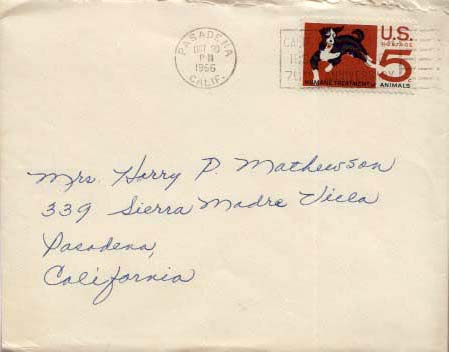 PASADENA
OCT 20
PM
1966
CALIF.
U.S.
POSTAGE
5c
HUMANE TREATMENT OF ANIMALS
Mrs. Harry P. Mathewson
339 Sierra Madre Villa
Pasadena,
California